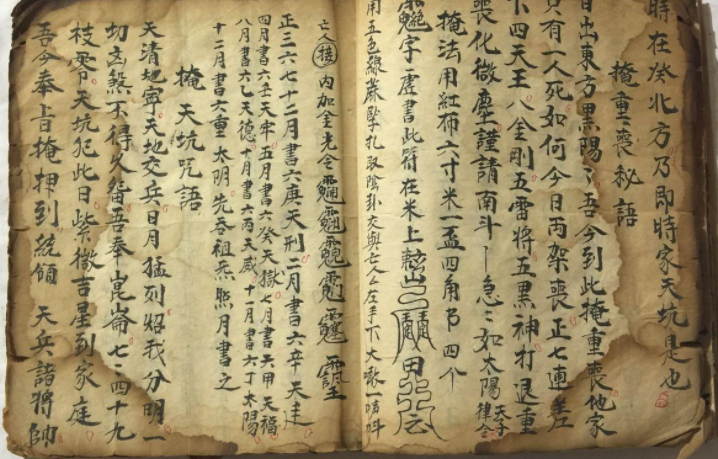 時在癸北方乃即時家天坑是也
掩重喪秘語
日出東方黑陽了吾今到此掩重喪他家
只有一人死如何今日丙架喪正七連差
下四天王八金刚五雷將五黑神打退重
喪化微塵謹請南斗急〻如太陽天子律令
掩法用紅布六寸米一盃四角弔四個
字虛書此符在米上
用五色線蔴擎扎取陰卦交與亡人厶左手下大
亡人接內加金光令
正三六七十二月書六庚天刑二月書六辛天達
四月書六壬天牢五月書六癸天獄七月書六甲天福
八月書六乙天德十月書六丙天威十一月書六丁太陽
十二月書六重太明先吞祖炁照月書之
掩天坑咒語
天清地寧天地交兵日月猛列焰我分明一
切凶煞不得久畄吾奉崑崙七〻四十九
枝零天坑犯此日紫微吉星到家庭
吾今奉旨掩押到統領天兵諸將帥